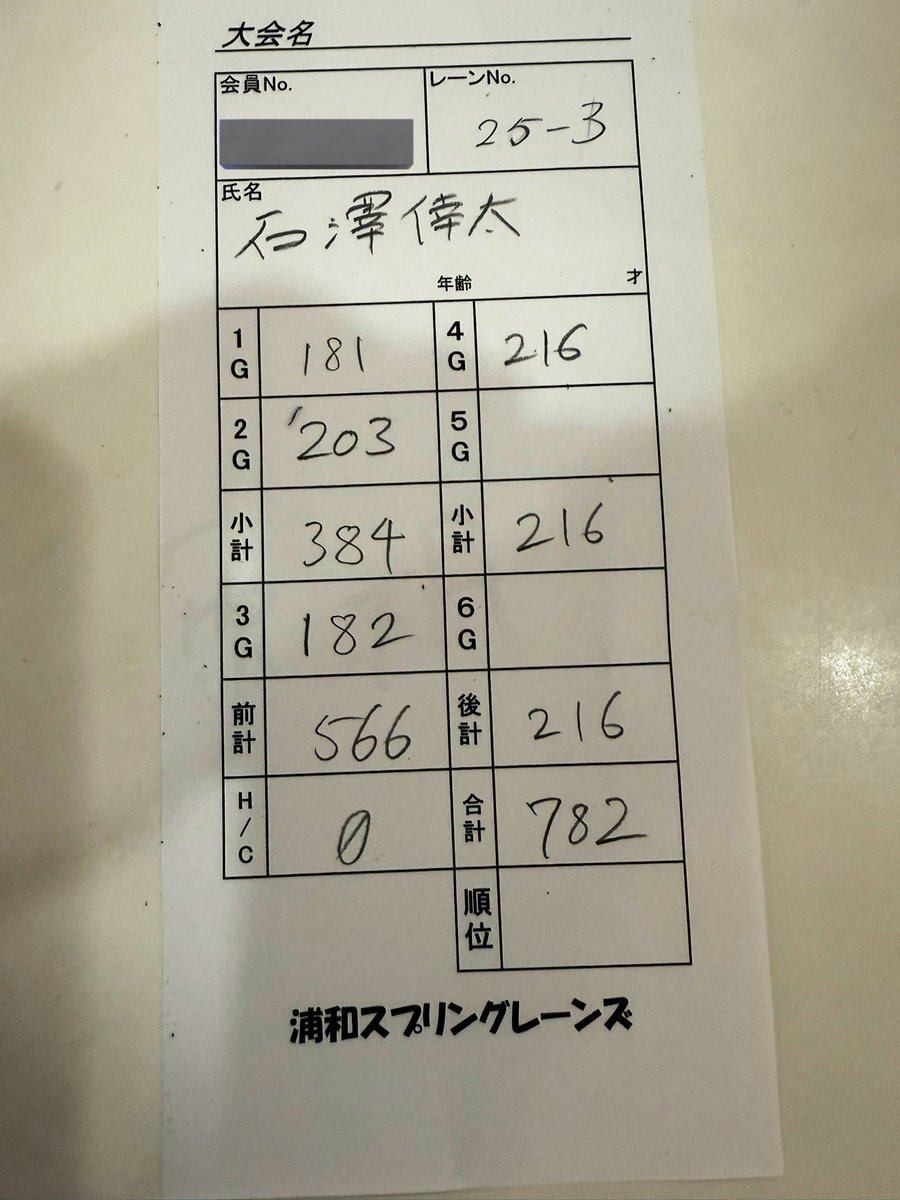 大会名
会員No. レーンNo.
25-3
氏名
石澤倖太
年齢 才
1G 181 4G 216
2G 203 5G
小計 384 小計 216
3G 182 6G
前計 566 後計 216
H/C 0 合計 782
順位
浦和スプリングレーンズ